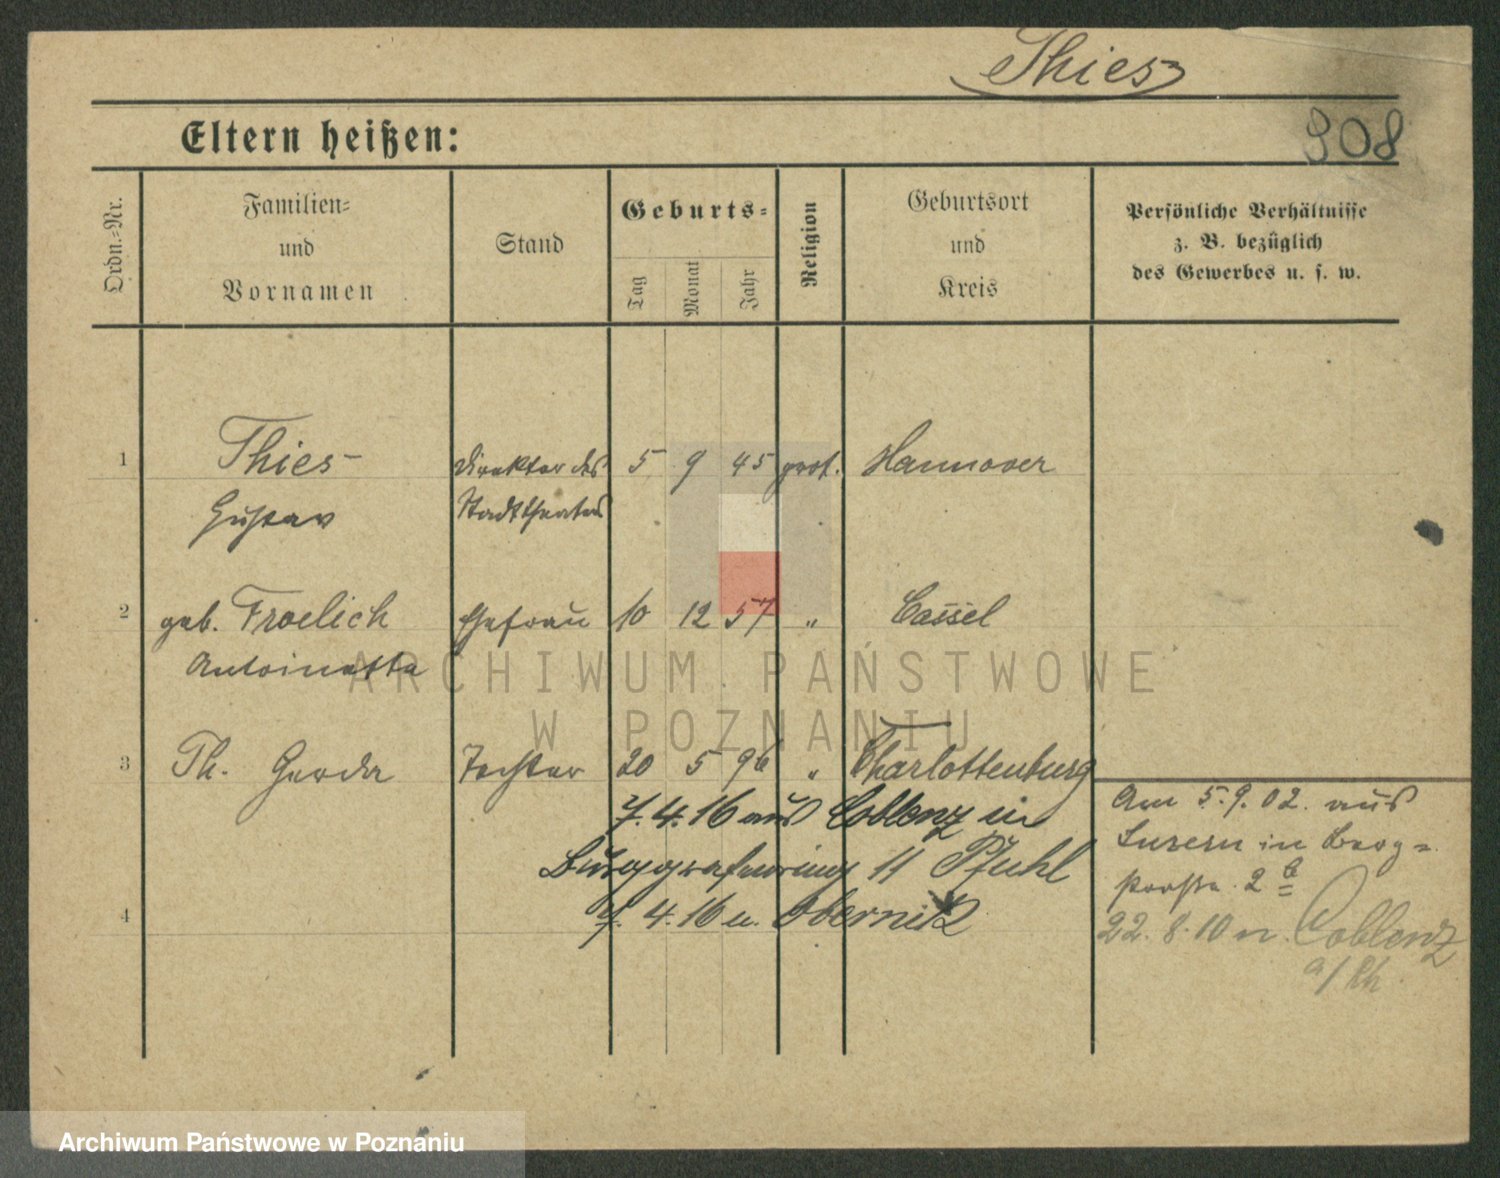 Thies
908
Eltern heißen:
Ordn.-Nr.
Familien-
und
Vornamen
Stand
Geburts-
Tag
Monat
Jahr
Religion
Geburtsort
und
Kreis
Persönliche Verhältnisse
z. B. bezüglich
des Gewerbes u. s. w.
1 Thies Direktor des 5 9 45 prot. Hannover
Gustav Stadttheaters
2 geb. Froelich Ehefrau 10 12 57 " Cassel
Antoinette
ARCHIWUM PAŃSTWOWE
W POZNANIU
3 Th. Gerda Tochter 20 5 96 " Charlottenburg
7. 4. 16 aus Coblenz in
Burggrafenring 11 Pfuhl
4 7. 4. 16 n. Obernick
Am 5. 9. 02. aus
Luzern in Berg-
straße 2b
22. 8. 10 n. Coblenz
a/Rh.
Archiwum Państwowe w Poznaniu